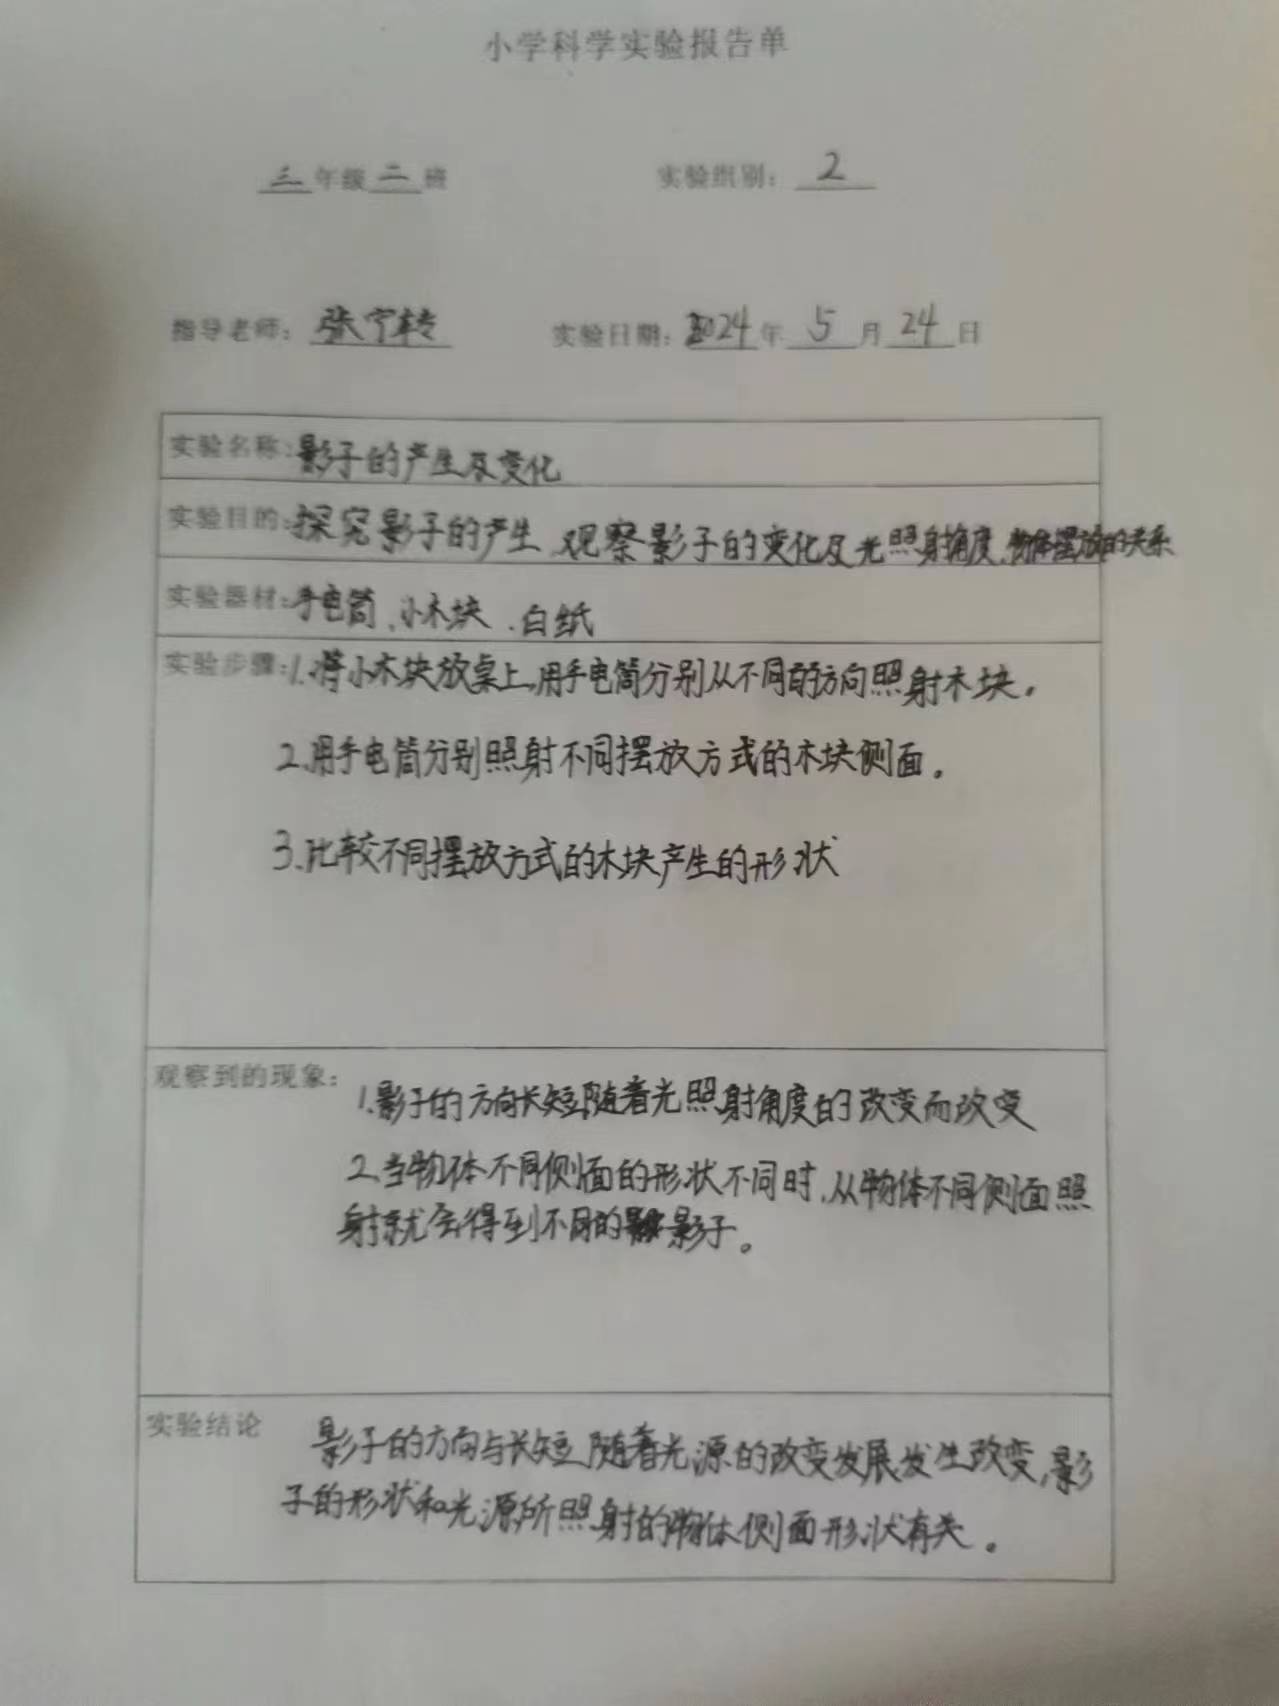 小学科学实验报告单
三年级二班 实验组别: 2
指导老师: 张宁转 实验日期: 2024年5月24日
实验名称:影子的产生及变化
实验目的:探究影子的产生、观察影子的变化及光照射角度、物体摆放的关系
实验器材:手电筒、小木块、白纸
实验步骤:1.将小木块放桌上,用手电筒分别从不同的方向照射木块。
2.用手电筒分别照射不同摆放方式的木块侧面。
3.比较不同摆放方式的木块产生的形状
观察到的现象: 1.影子的方向长短随着光照射角度的改变而改变
2.当物体不同侧面的形状不同时,从物体不同侧面照
射就会得到不同的影子。
实验结论 影子的方向与长短随着光源的改变发展发生改变,影
子的形状和光源所照射的物体侧面形状有关。